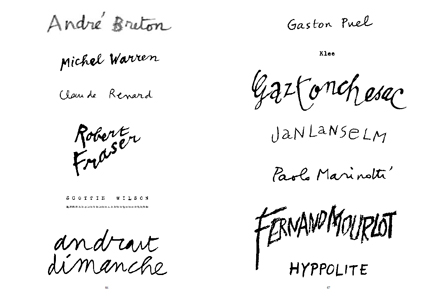 André Breton
Michel Warren
Claude Renard
Robert
Fraser
SCOTTIE WILSON
andraut
dimanche
Gaston Puel
Klee
JANLANSELM
Paolo Marinotti
FERNAND MOURLOT
HYPPOLITE